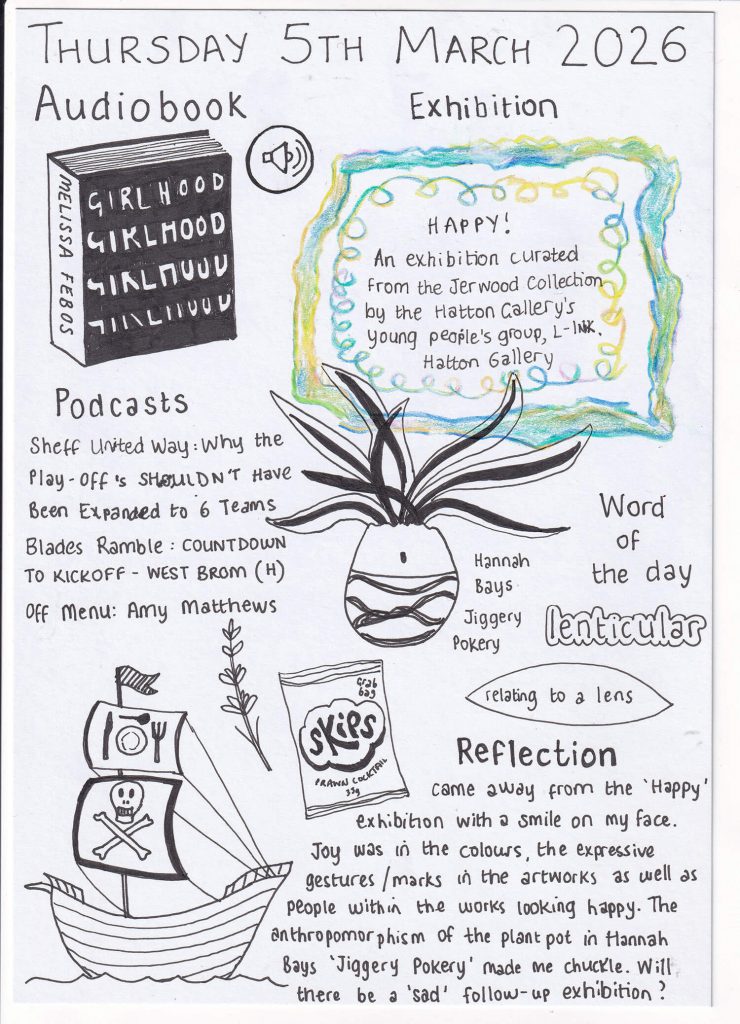 THURSDAY 5TH MARCH 2026
Audiobook
MELISSA FEBOS
GIRLHOOD
GIRLHOOD
GIRLHOOD
GIRLHOOD
Exhibition
HAPPY!
An exhibition curated
from the Jerwood Collection
by the Hatton Gallery's
young people's group, L-INK.
Hatton Gallery
Podcasts
Sheff United Way: Why the
Play-Off's SHOULDN'T Have
Been Expanded to 6 Teams
Blades Ramble: COUNTDOWN
TO KICKOFF - WEST BROM (H)
Off Menu: Amy Matthews
Hannah
Bays
Jiggery
Pokery
Word
of
the day
lenticular
relating to a lens
Grab
bag
SKIPS
PRAWN COCKTAIL
33g
Reflection
Came away from the 'Happy'
exhibition with a smile on my face.
Joy was in the colours, the expressive
gestures/marks in the artworks as well as
people within the works looking happy. The
anthropomorphism of the plant pot in Hannah
Bays 'Jiggery Pokery' made me chuckle. Will
there be a 'sad' follow-up exhibition?